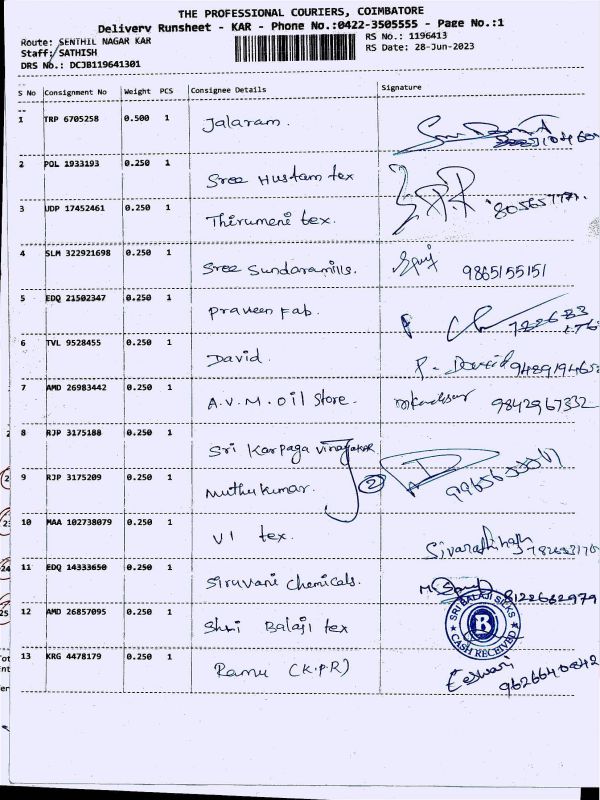 THE PROFESSIONAL COURIERS, COIMBATORE
Delivery Runsheet - KAR - Phone No.:0422-3505555 - Page No.:1
Route: SENTHIL NAGAR KAR
RS No.: 1196413
Staff: SATHISH
RS Date: 28-Jun-2023
DRS No.: DCJB119641301
S No Consignment No Weight PCS Consignee Details Signature
1 TRP 6705258 0.500 1 Jalaram.
2 POL 1933193 0.250 1 Sree Hustam tex
3 UDP 17452461 0.250 1 Thirumeni tex.
4 SLM 322921698 0.250 1 Sree Sundaramills. 9865155151
5 EDQ 21502347 0.250 1 Praveen Fab.
6 TVL 9528455 0.250 1 David. P. David
7 AMD 26983442 0.250 1 A.V.M. oil Store. 9842967332
8 RJP 3175188 0.250 1 Sri Karpaga Vinayakar
9 RJP 3175209 0.250 1 Muthukumar. 2
10 MAA 102738079 0.250 1 VI tex.
11 EDQ 14333650 0.250 1 Siruvani Chemicals.
12 AMD 26857095 0.250 1 Shri Balaji tex
SRI BALAJI SILKS
B
CASH RECEIVED
13 KRG 4478179 0.250 1 Ramu (K.P.R) Eeswari